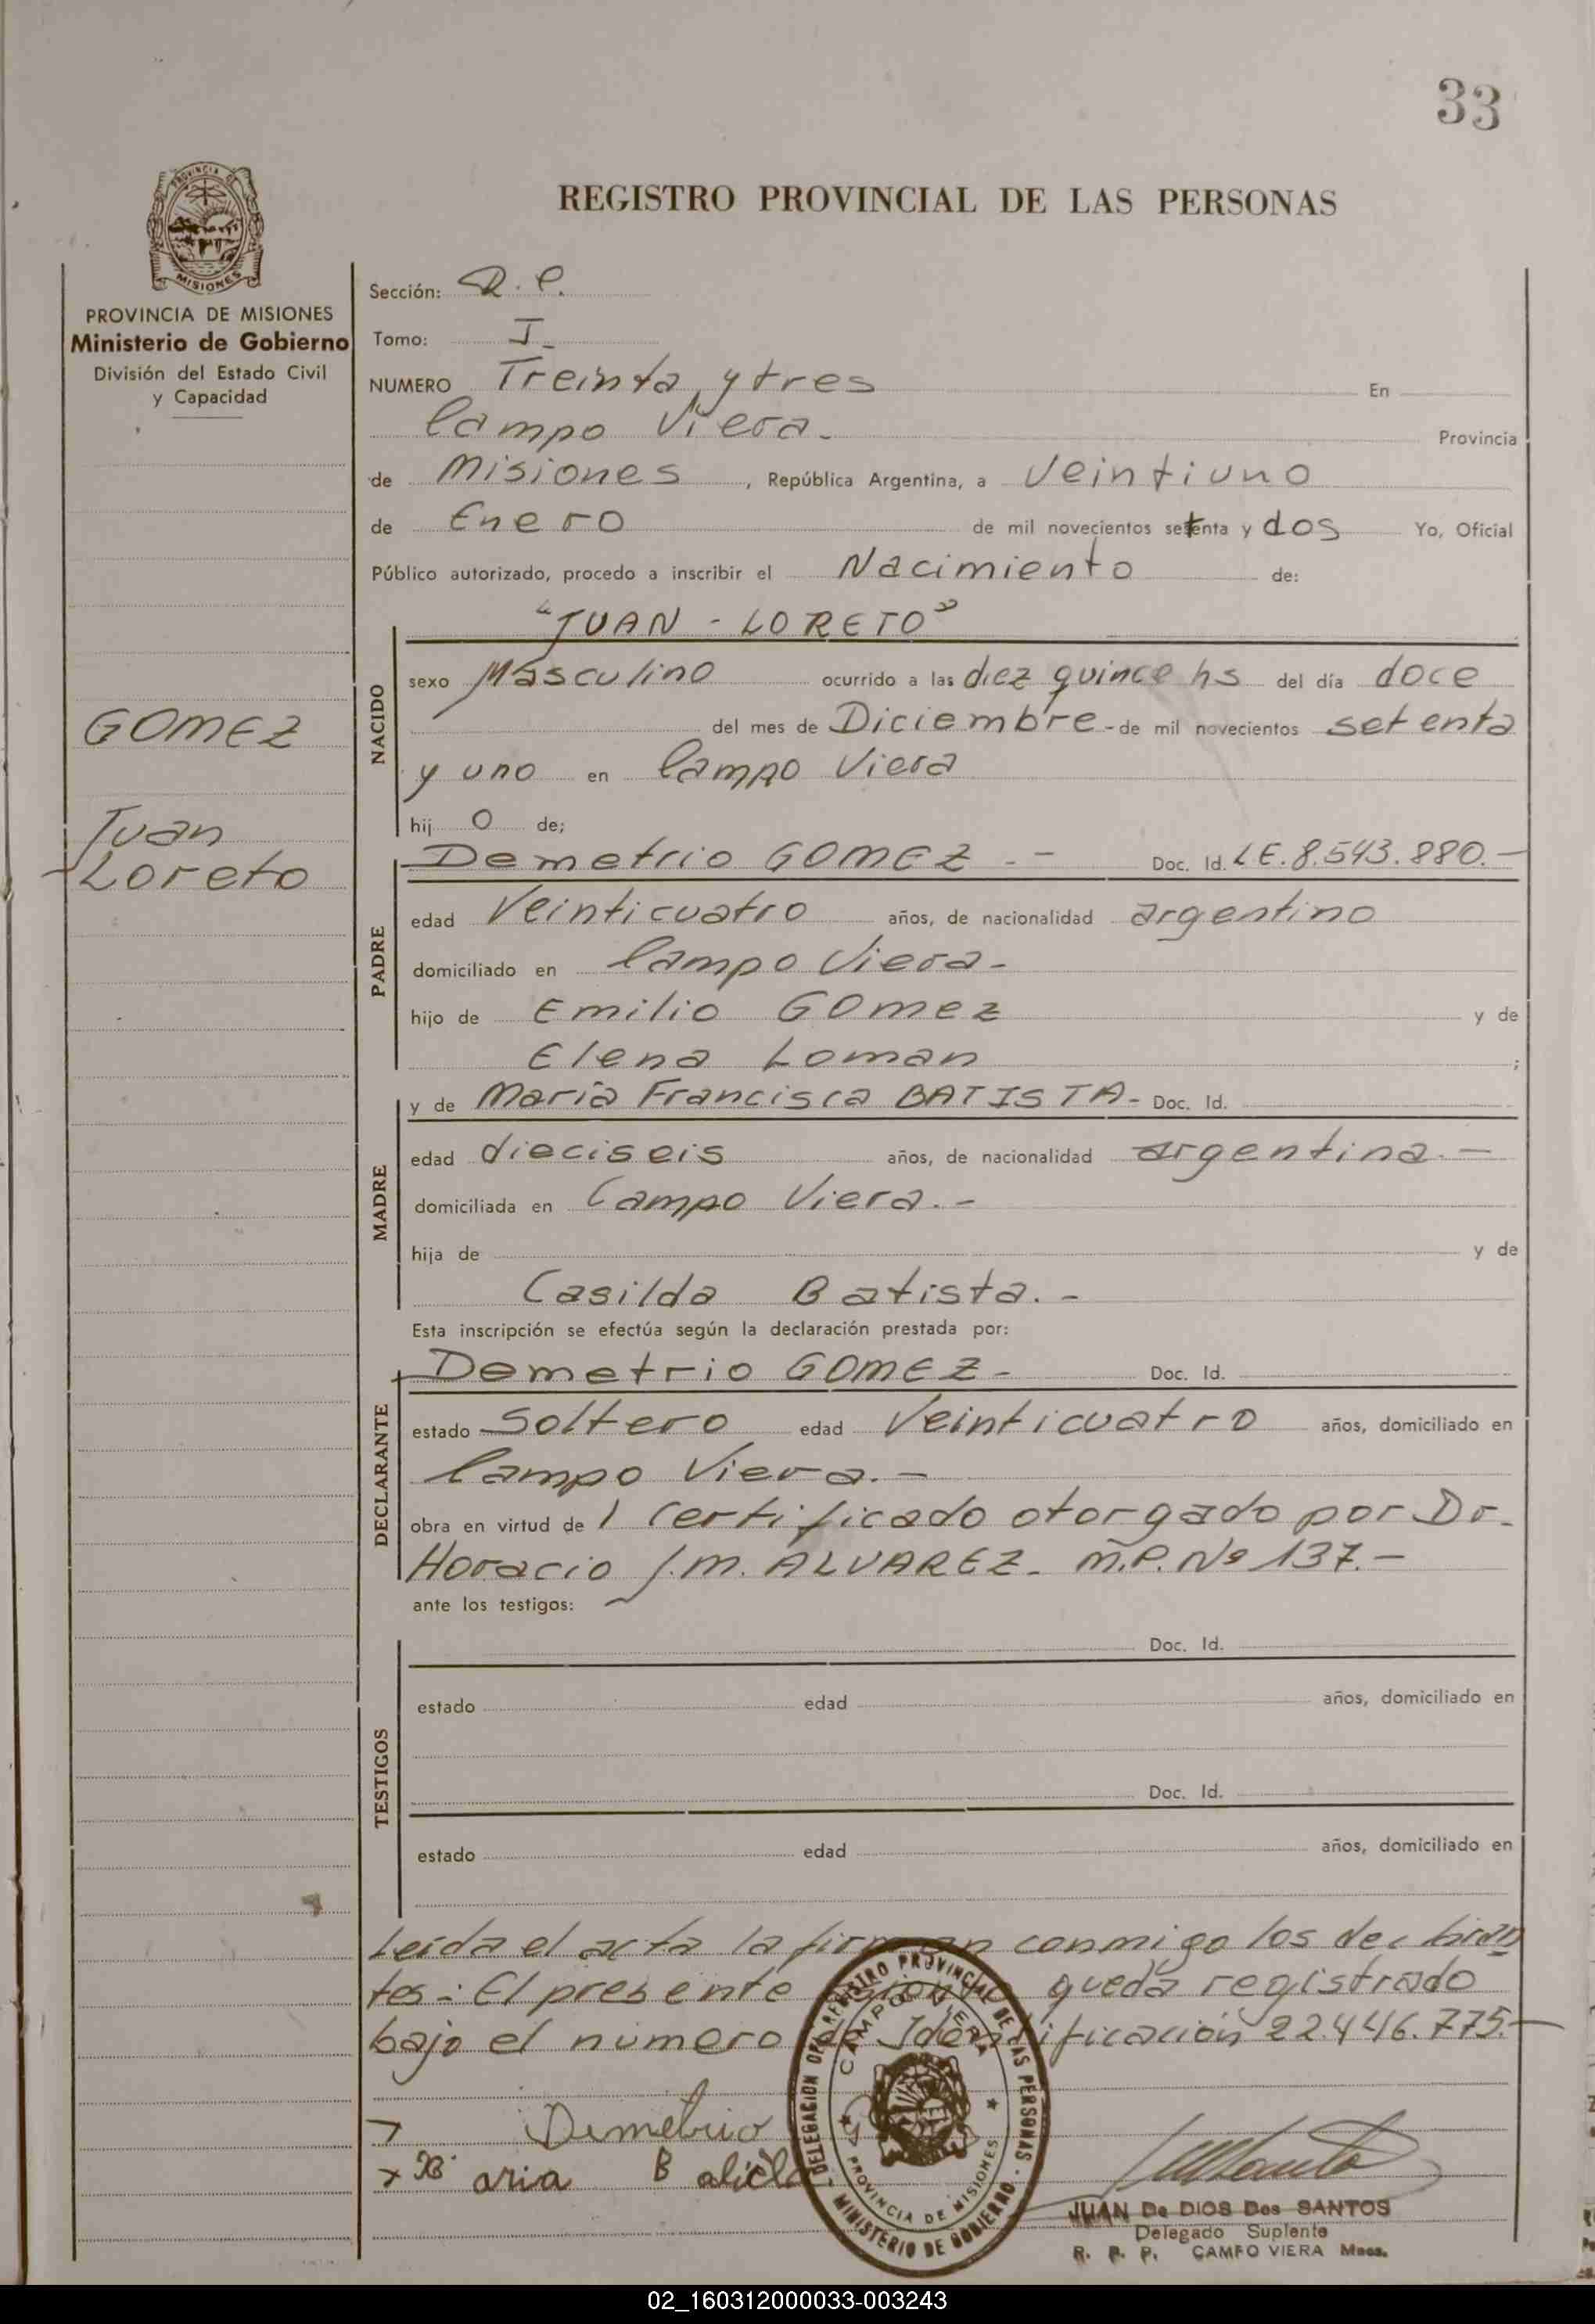 33
PROVINCIA DE
MISIONES
REGISTRO PROVINCIAL DE LAS PERSONAS
PROVINCIA DE MISIONES
Ministerio de Gobierno
División del Estado Civil
y Capacidad
GOMEZ
Juan
Loreto
Sección:
Tomo: I_
NUMERO Treinta y tres En
Campo Viera.
Provincia
de Misiones, República Argentina, a Veintiuno
de Enero de mil novecientos setenta y dos Yo, Oficial
Público autorizado, procedo a inscribir el Nacimiento de:
"JUAN - LORETO"
NACIDO
sexo Masculino ocurrido a las diez quince hs del día doce
del mes de Diciembre - de mil novecientos setenta
y uno en Campo Viera
hij o de;
PADRE
Demetrio GOMEZ - - Doc. Id. L E. 8.543.880. -
edad Veinticuatro años, de nacionalidad argentino
domiciliado en Campo Viera -
hijo de Emilio GOMEZ y de
Elena Loman ;
MADRE
y de María Francisca BATISTA - Doc. Id.
edad dieciseis años, de nacionalidad argentina. -
domiciliada en Campo Viera. -
hija de y de
Casilda Batista. -
Esta inscripción se efectúa según la declaración prestada por:
DECLARANTE
Demetrio GOMEZ - Doc. Id.
estado Soltero edad Veinticuatro años, domiciliado en
Campo Viera. -
obra en virtud de 1 Certificado otorgado por Dr.
Horacio J.M. ALVAREZ - M.P. Nº 137. -
ante los testigos:
TESTIGOS
Doc. Id.
estado edad años, domiciliado en
Doc. Id.
estado edad años, domiciliado en
Leída el acta la firman conmigo los declaran
tes: El presente queda registrado
bajo el número de Identificación 22.446.775. -
Demetrio
aria B
DELEGACION DEL REGISTRO PROVINCIAL DE LAS PERSONAS - MINISTERIO DE GOBIERNO -
CAMPO VIERA
PROVINCIA DE MISIONES
JUAN De DIOS Dos SANTOS
Delegado Suplente
R. P. P. CAMPO VIERA Mnes.
02_160312000033-003243